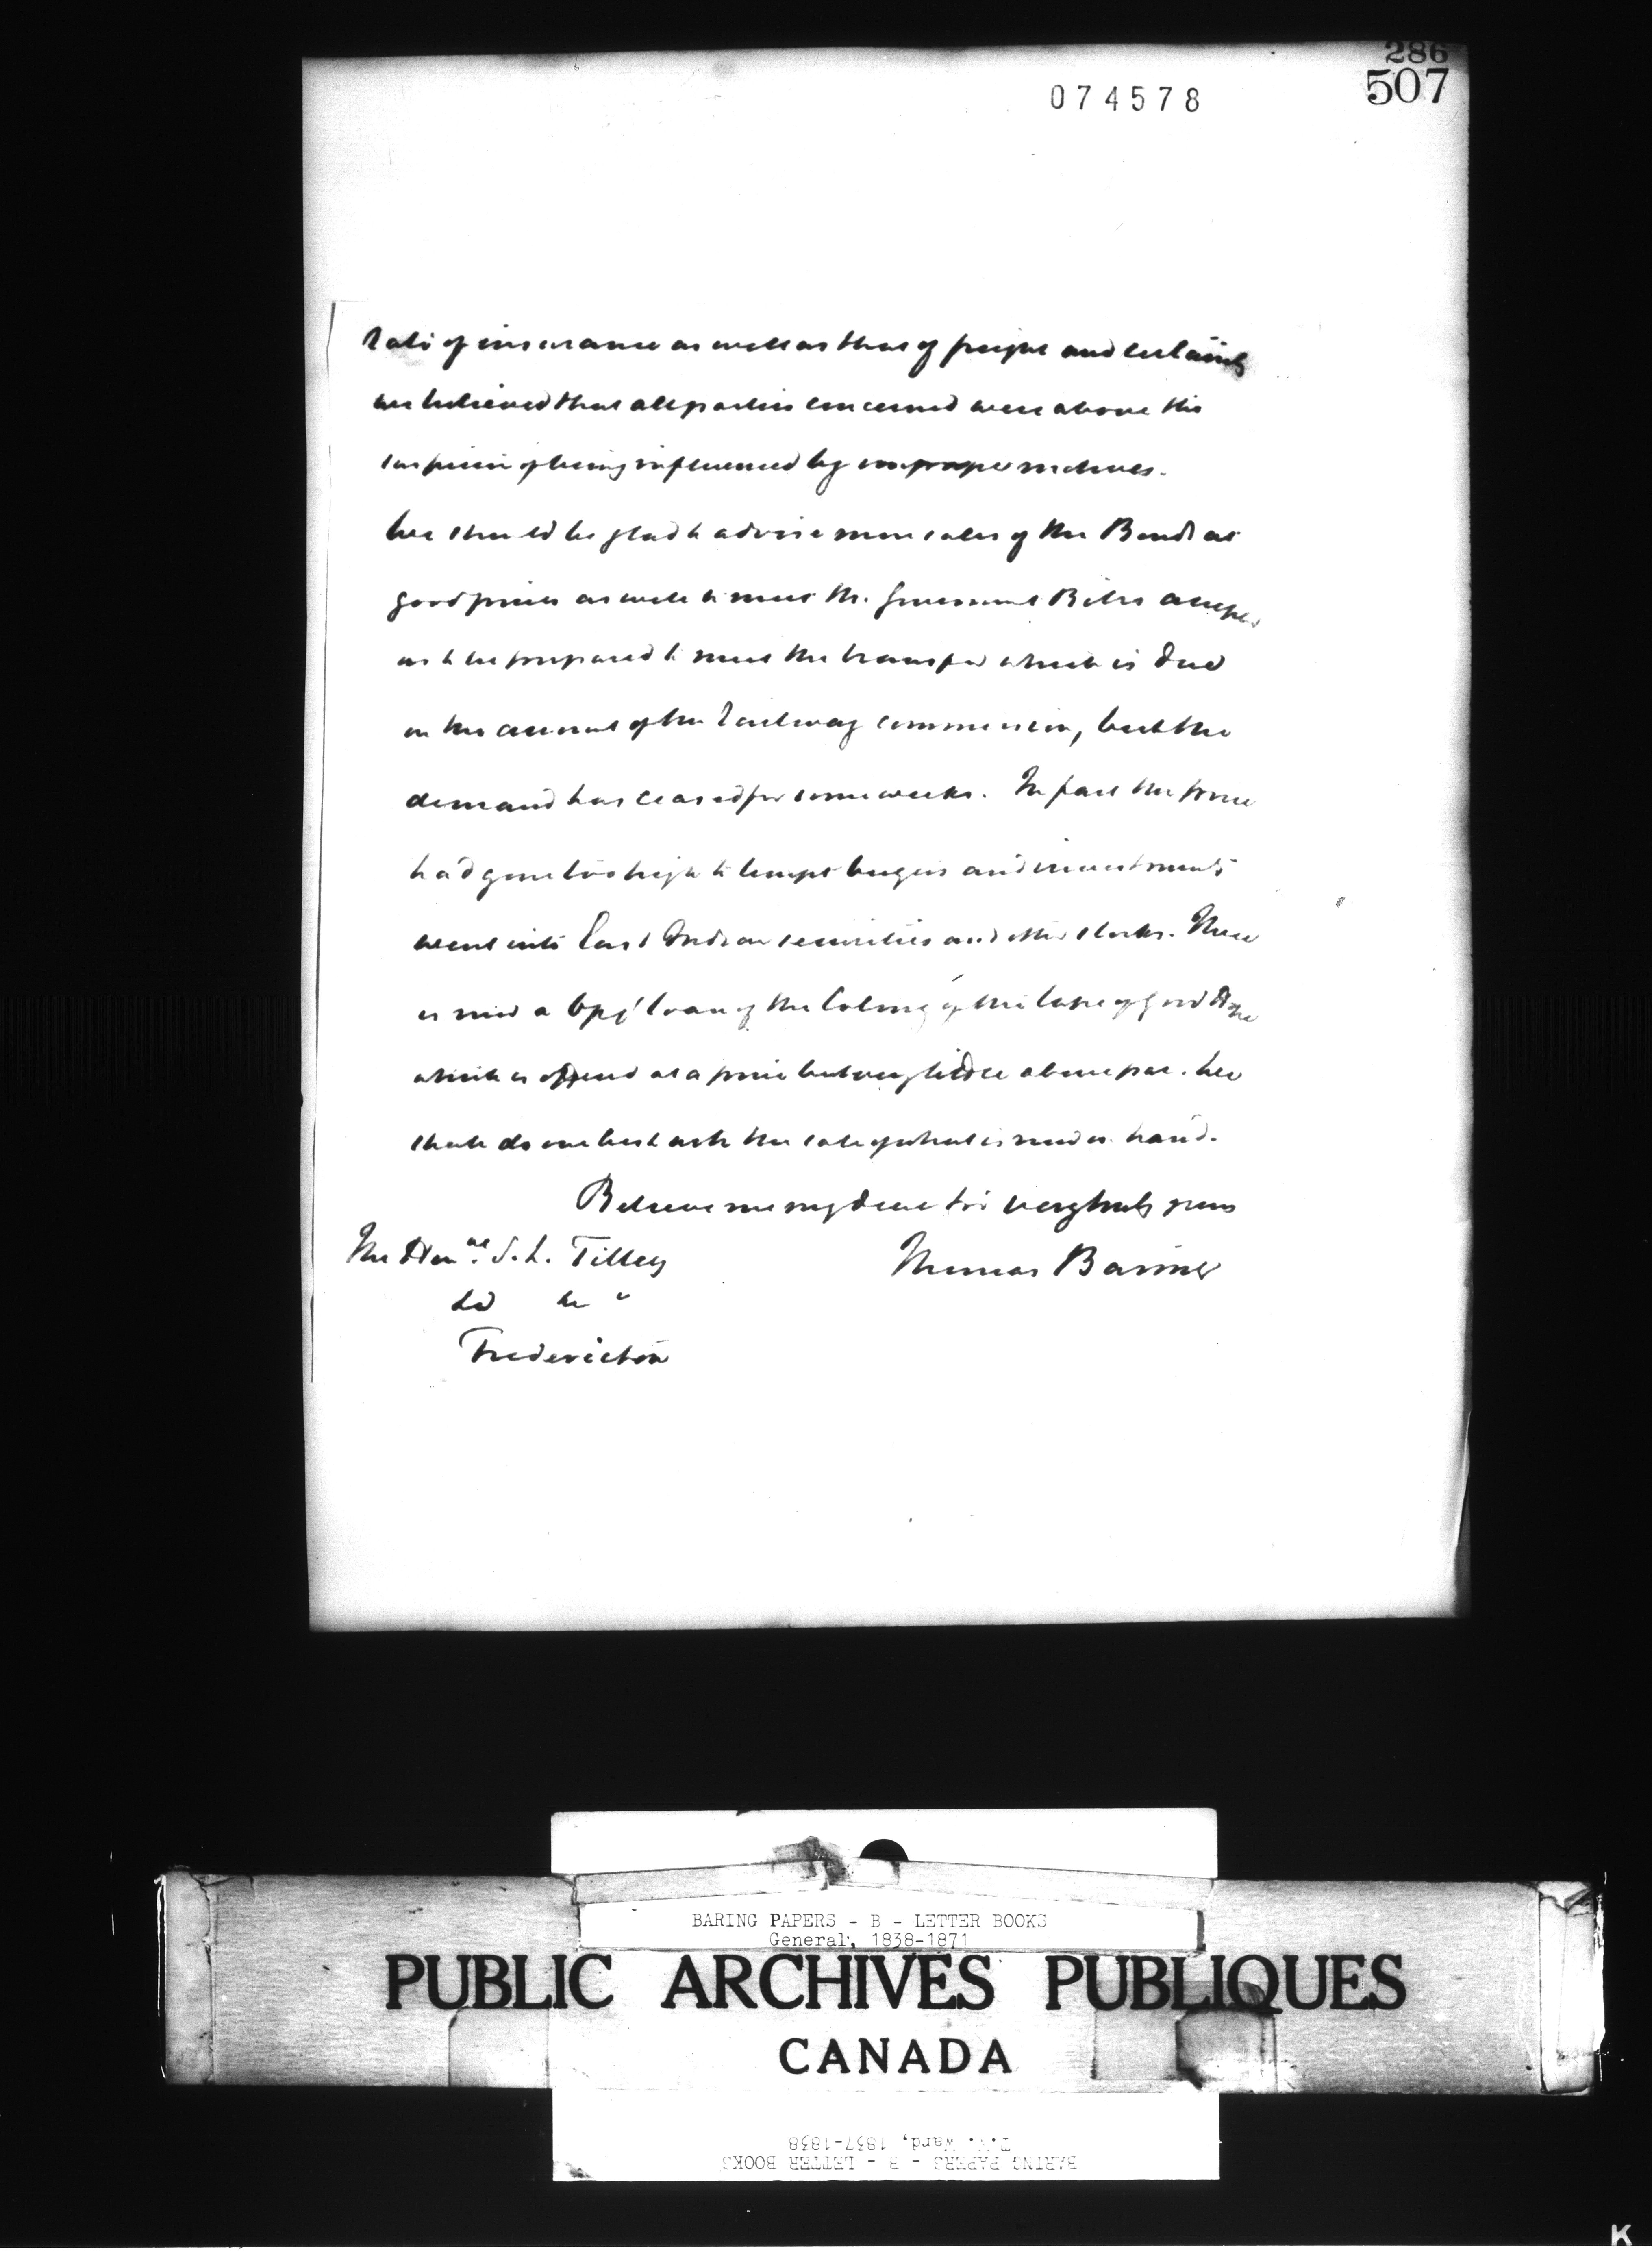 286
507
074578
rate of insurance as well as that of freight and certainly
we believed that all parties concerned were above the
suspicion of being influenced by improper motives.
We should be glad to advise more sales of the Bonds at
good prices as well to meet the Government Bills accepted
as to be prepared to meet the transfer which is due
on the account of the Railway commission, but the
demand has ceased for some weeks. In fact the price
had gone too high to tempt buyers and investments
went into East Indian securities and other stocks. There
is now a 6 p% loan of the Colony of the Cape of Good Hope
which is offered at a price but very little above par. We
shall do our best with the sale of what is under hand.
Believe me my dear Sir very truly yours
Thomas Baring
The Hon.ble S. L. Tilley
Fredericton
BARING PAPERS - B - LETTER BOOKS
General, 1838-1871
PUBLIC ARCHIVES PUBLIQUES
CANADA
BARING PAPERS - B - LETTER BOOKS
T.W. Ward, 1837-1838
K